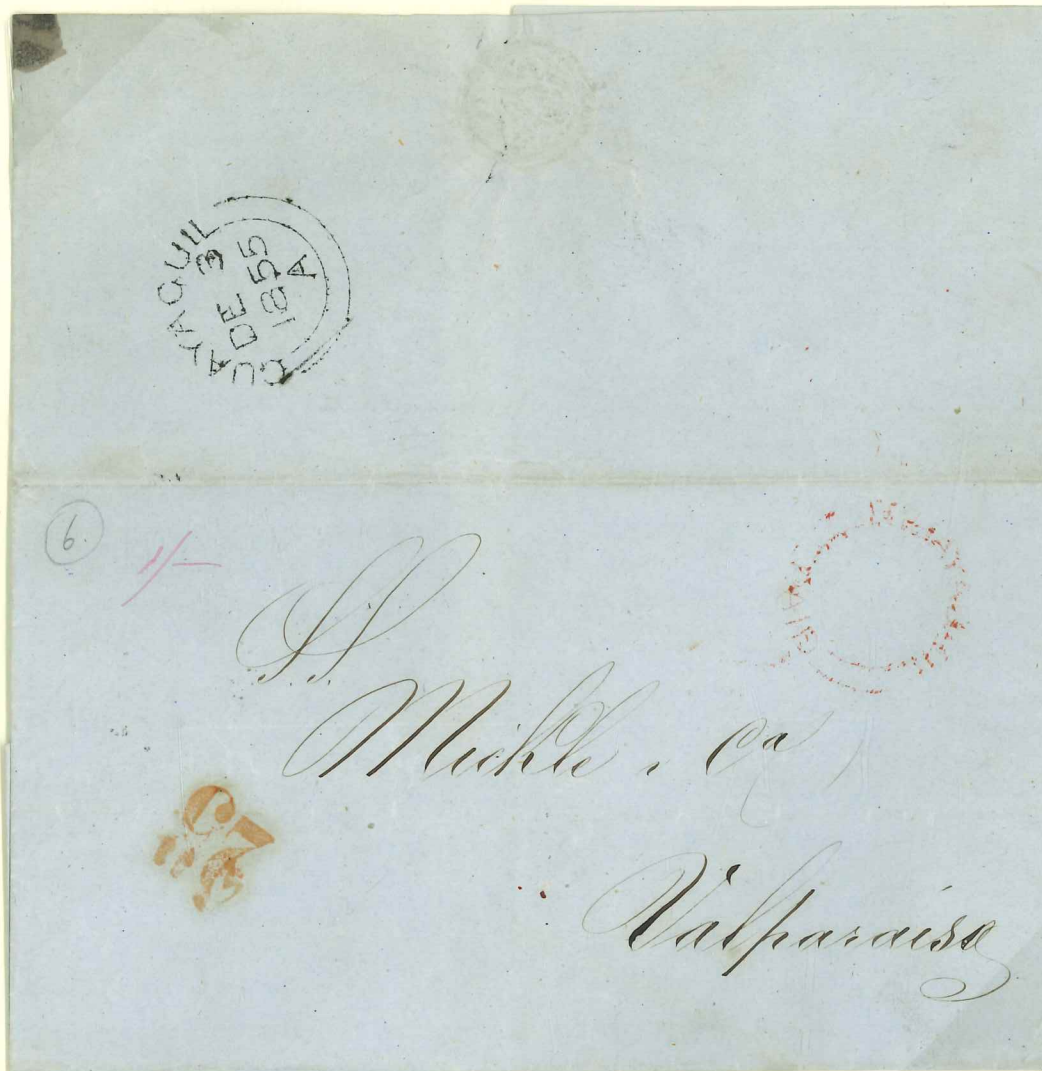 GUAYAQUIL
DE 3
1855
A
6.
1/-
PAID
S.S.
Mickle i Ca
Valparaiso